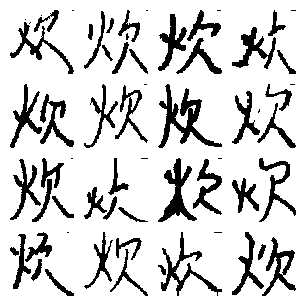 炊炊炊炊
炊炊炊炊
炊炊炊炊
炊炊炊炊